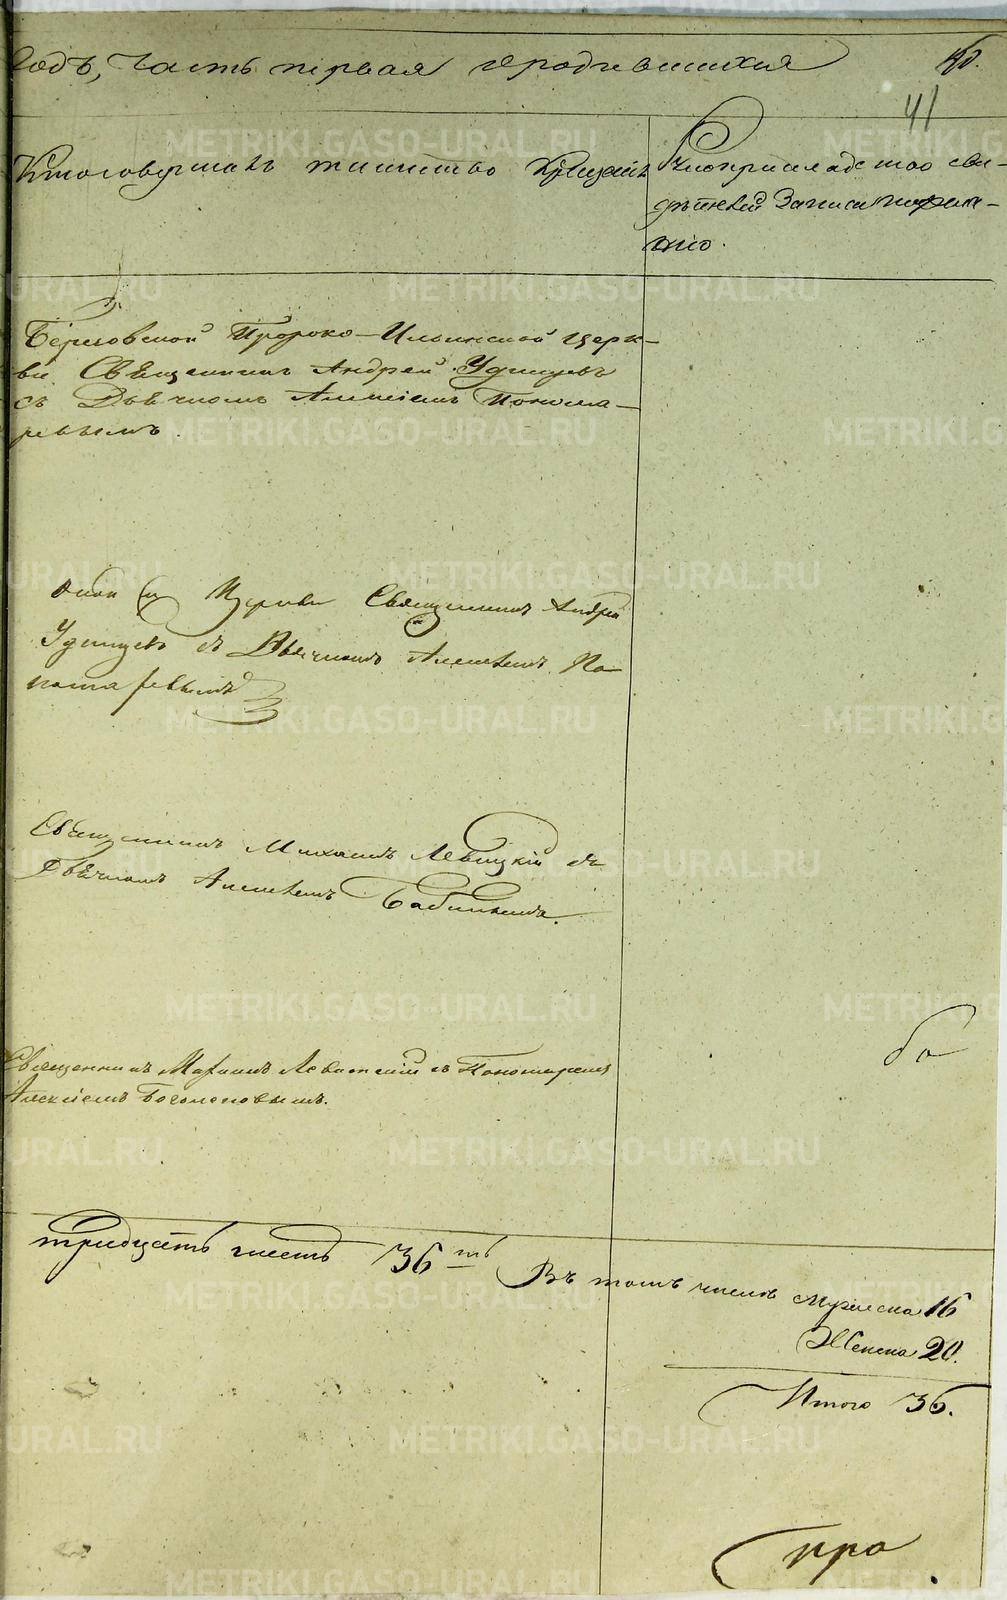 годъ, Часть первая ородившихся
41
Ктосовершалъ таинство Крещенія
Ктоприкладство сви-
дѣтелей Записи пожела-
нію.
Береговской Пророко-Ильинской Церк-
ви Священникъ Андрей Удинцевъ
съ Дьячкомъ Алексіемъ Понома-
ревымъ.
Церкви Священникъ Андрей
Удинцевъ съ Дьячкомъ Алексѣемъ По-
номаревымъ
Священникъ Михаилъ Левицкій съ
Дьячкомъ Алексѣемъ Бабинымъ.
Священникъ Левитскій съ Пономаремъ
Алексіемъ Богомоловымъ.
тридцать шесть 36ть
Въ томъ числѣ мужеска 16
Женска 20.
Итого 36.
METRIKI.GASO-URAL.RU